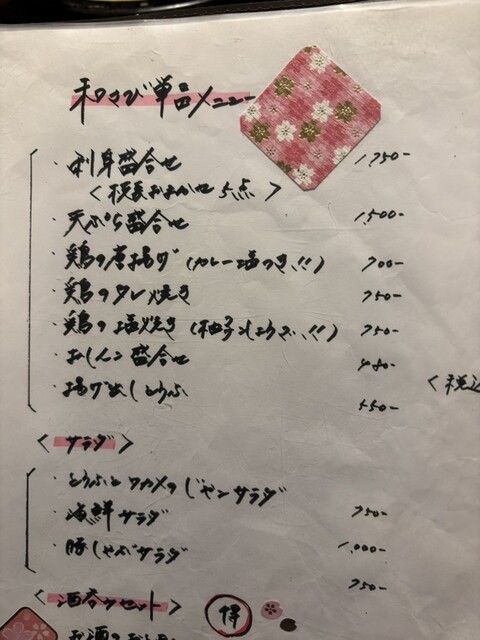 和さび単品メニュー
・刺身盛合せ 1,750-
<板長おまかせ 5点>
・天ぷら盛合せ 1,500-
・鶏の唐揚げ (カレー塩つき!!) 700-
・鶏のタレ焼き 750-
・鶏の塩焼き (柚子こしょうで!!) 750-
・おしんこ盛合せ 480-
・揚げ出しとうふ 550-
<税込
<サラダ>
・とうふとワカメのじゃこサラダ 750-
・海鮮サラダ 1,000-
・豚しゃぶサラダ 750-
<酒呑みセット> 得